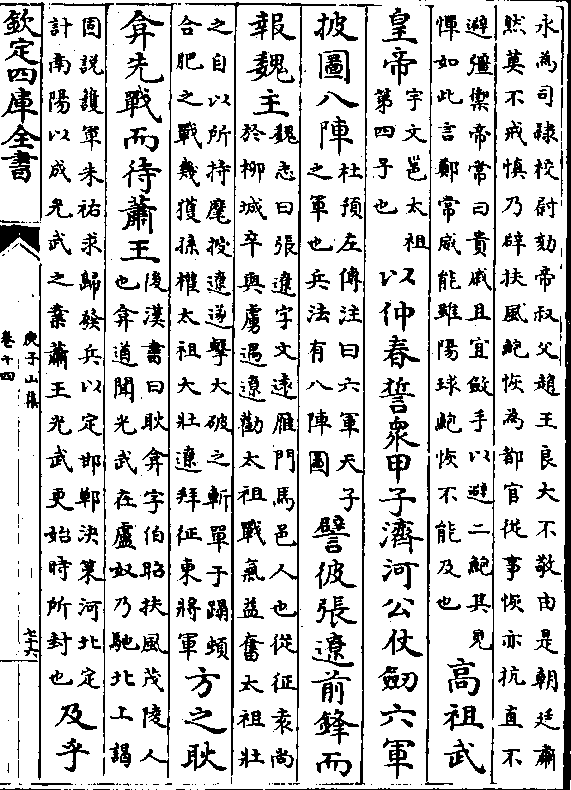 永為司隸校尉劾帝叔父趙王良大不敬由是朝廷肅
然莫不戒慎乃辟扶風鮑恢為都官從事恢亦抗直不
避彊禦帝常曰貴戚且宜斂手以避二鮑其見
憚如此言鄭常威能雖陽球鮑恢不能及也
高祖武
皇帝
宇文邕太祖
第四子也
以仲春誓衆甲子濟河公仗劔六軍
披圖八陣
杜預左傳注曰六軍天子
之軍也兵法有八陣圖
譬彼張遼前鋒而
報魏主
魏志曰張遼字文遠雁門馬邑人也從征袁尚
於柳城卒與虜遇遼勸太祖戰氣益奮太祖壯
之自以所持麾授遼遂擊大破之斬單于蹋頓
合肥之戰幾獲孫權太祖大壯遼拜征東將軍
方之耿
弇先戰而待蕭王
後漢書曰耿弇字伯昭扶風茂陵人
也弇道聞光武在盧奴乃馳北上謁
因說護軍朱祐求歸發兵以定邯鄲決策河北定
計南陽以成光武之業蕭王光武更始時所封也
及乎
欽定四庫全書
庾子山集
卷十四
七十六